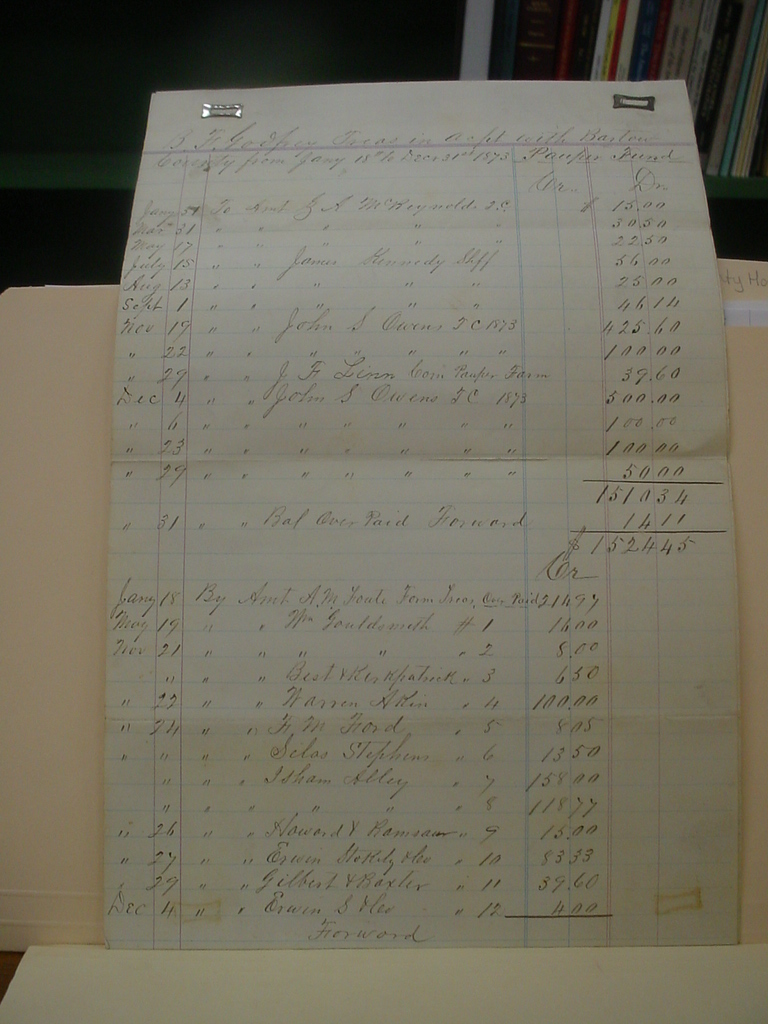 B. F. Godfrey Treas in acpt with Bartow
County from Jany 18th to Dec 31st 1873 Pauper Fund
Cr. Dr.
Jany 31 To Amt A McReynolds T.C. $ 15.00
Mar 31 " " " " " 30 50
May 17 " " " " " 22 50
July 15 " " James Kennedy Shff 56 00
Aug 13 " " " " " 25 00
Sept 1 " " " " " 46 14
Nov 19 " " John S Owens T C 1873 425.60
" 22 " " " " " " " 100.00
" 29 " " J F Linn Com Pauper Farm 39.60
Dec 4 " " John S Owens T C 1873 500.00
" 6 " " " " " " " 100.00
" 23 " " " " " " " 100.00
" 29 " " " " " " " 50 00
1510 34
" 31 " " Bal Over Paid Forward 14 11
$ 1524 45
Cr
Jany 18 By Amt A. M. Foute Form Treas Over Paid 214 97
May 19 " " Wm Gouldsmith # 1 16 00
Nov 21 " " " " " 2 8.00
" " " Best & Kirkpatrick " 3 6 50
" 22 " " Warren Akin " 4 100.00
" 24 " " F. M. Ford " 5 8 05
" " " " Selas Stephens " 6 13 50
" " " Isham Alley " 7 158 00
" " " " " " 8 118 77
" 26 " " Howard & Ramsaur " 9 15.00
" 27 " " Erwin Stokely & Co " 10 83 33
" 29 " " Gilbert & Baxter " 11 39.60
Dec 4 " " Erwin S & Co " 12 4 00
Forward